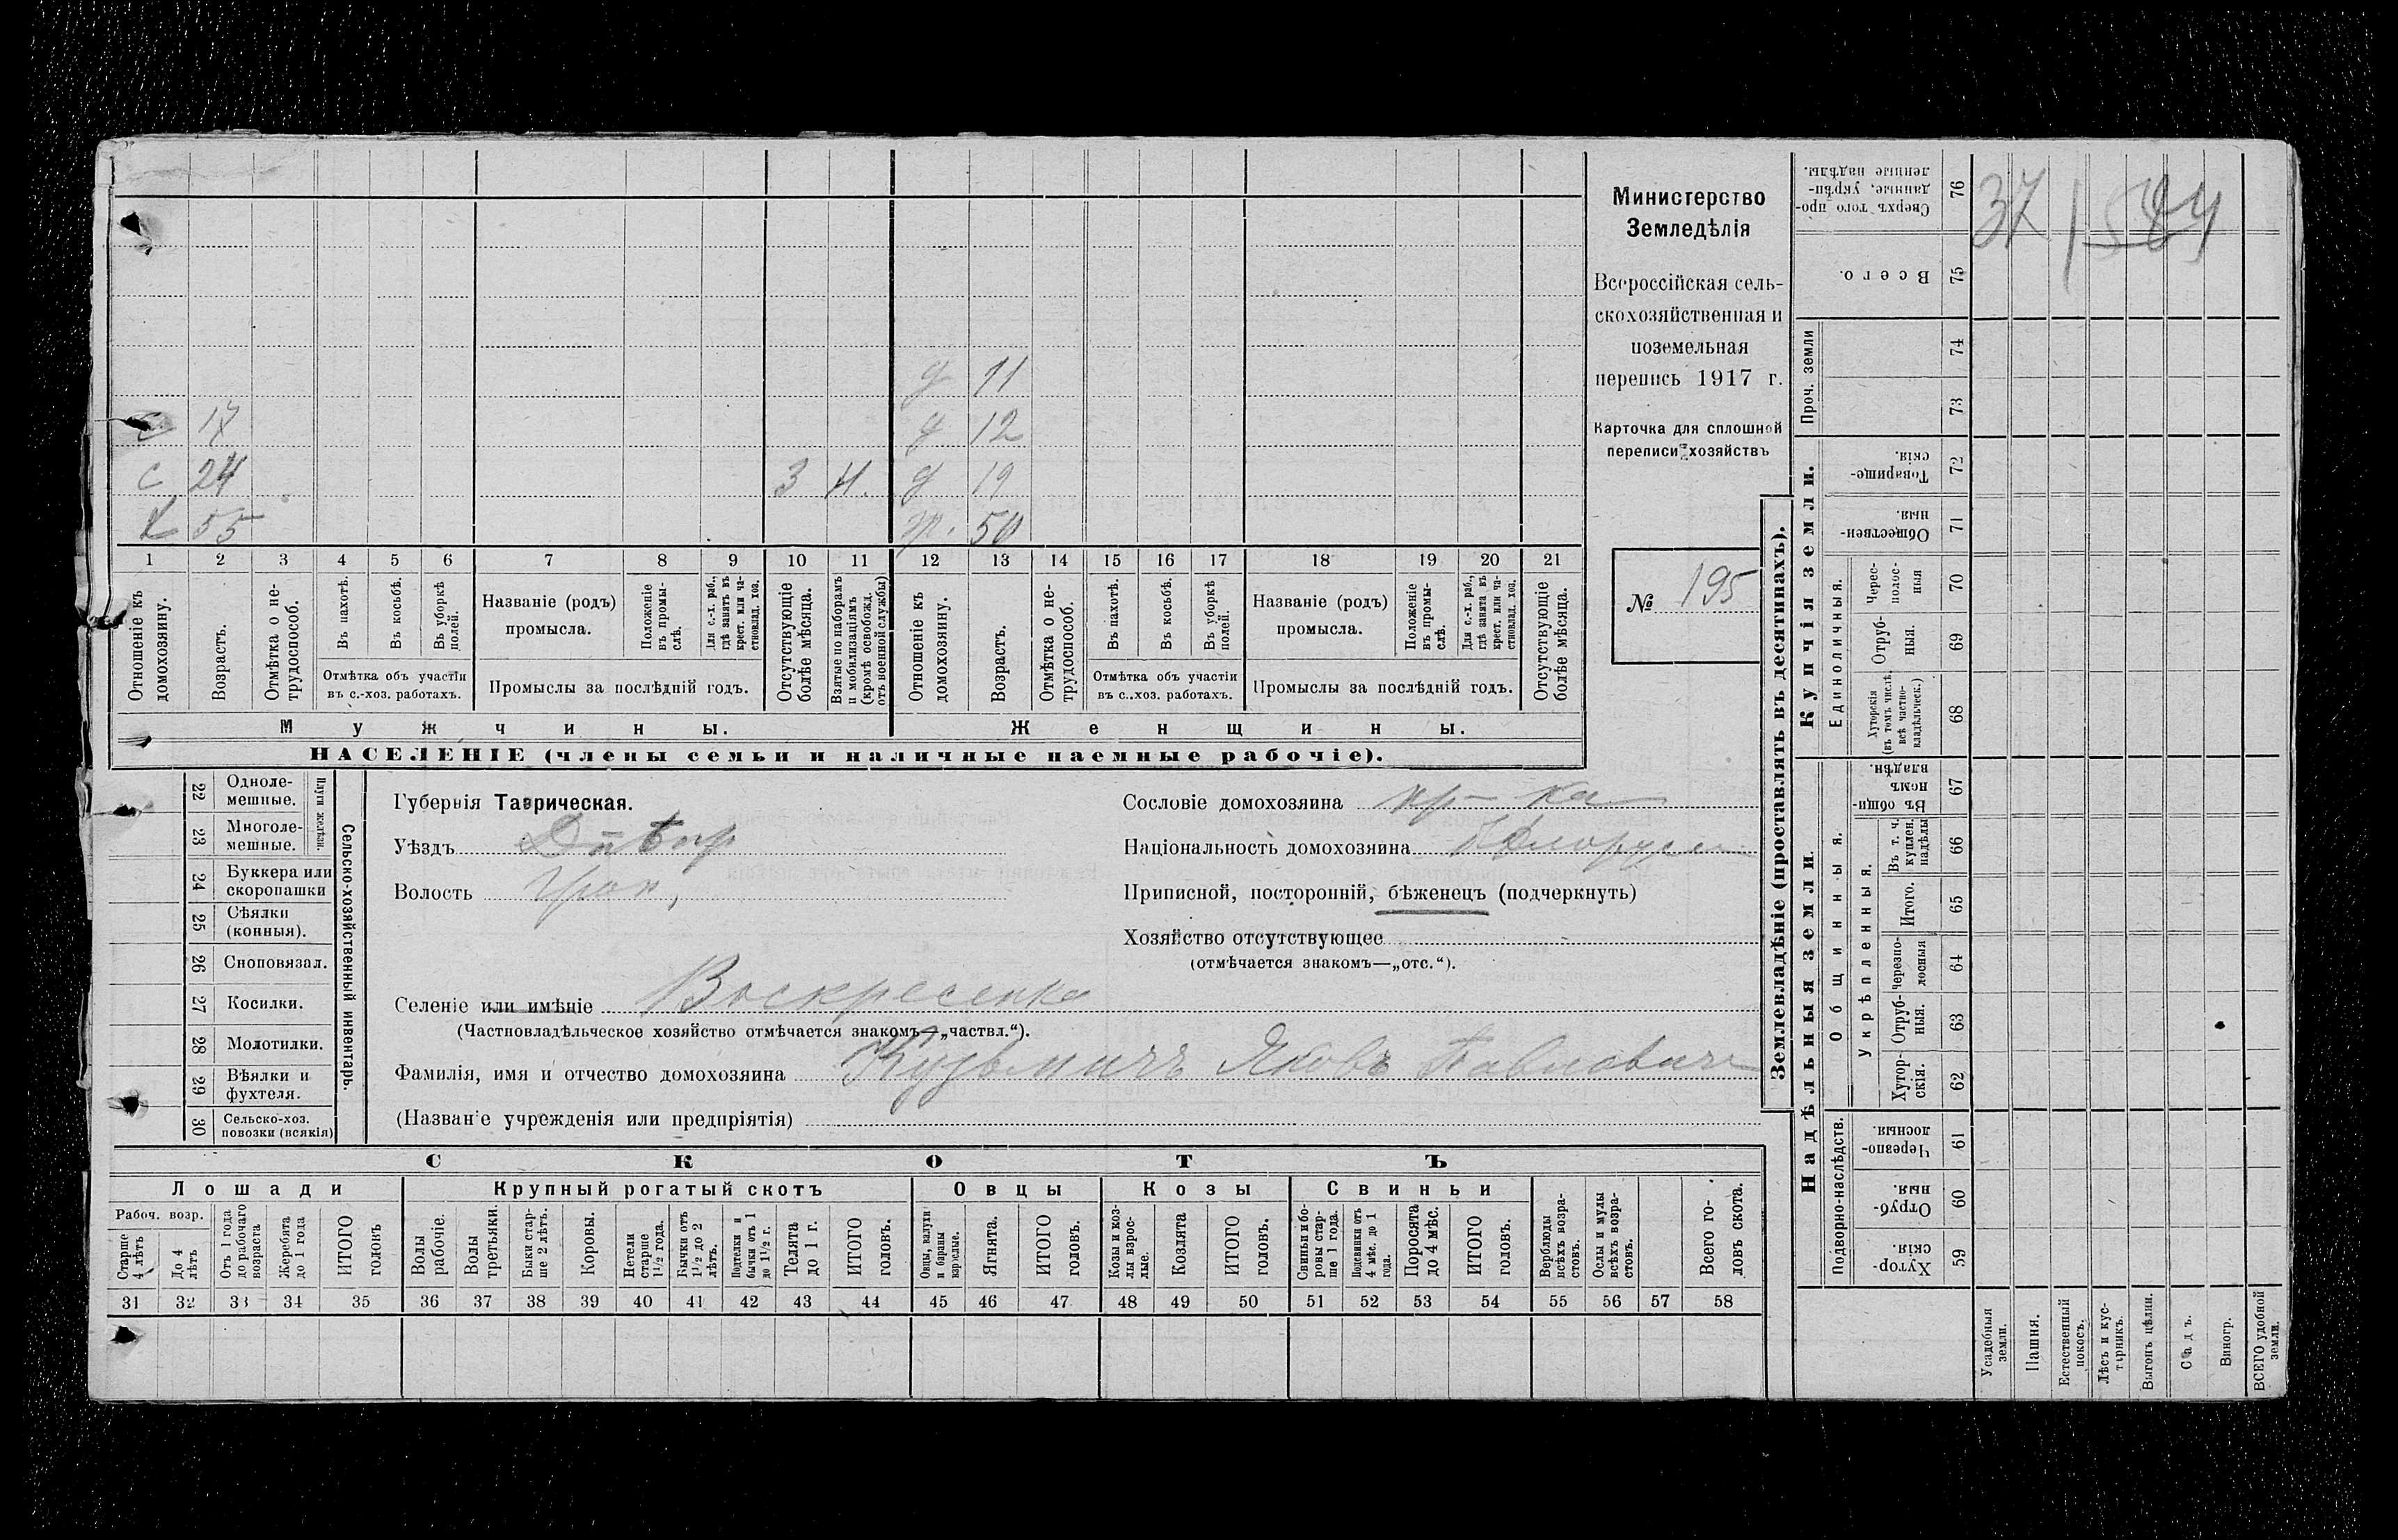 с 17
с 24 3 Н.
Х 55
д 11
д 12
д 19
ж. 50
1 2 3 4 5 6 7 8 9 10 11 12 13 14 15 16 17 18 19 20 21
Отношеніе къ домохозяину.
Возрастъ.
Отмѣтка о не-
трудоспособ.
Въ пахотѣ.
Въ косьбѣ.
Въ уборкѣ полей.
Отмѣтка объ участіи
въ с.-хоз. работахъ.
Названіе (родъ)
промысла.
Положеніе
въ промы-
слѣ.
Для с.-х. раб.,
гдѣ занятъ въ
крест. или ча-
стновлад. хоз.
Промыслы за послѣдній годъ.
Отсутствующіе
болѣе мѣсяца.
Взятые по наборамъ
и мобилизаціямъ
(кромѣ освобожд.
отъ военной службы)
Отношеніе къ
домохозяину.
Возрастъ.
Отмѣтка о не-
трудоспособ.
Въ пахотѣ.
Въ косьбѣ.
Въ уборкѣ
полей.
Отмѣтка объ участіи
въ с..хоз. работахъ.
Названіе (родъ)
промысла.
Положеніе
въ промы-
слѣ.
Для с.-х. раб.,
гдѣ занята въ
крест. или ча-
стновлад. хоз.
Промыслы за послѣдній годъ.
Отсутствующіе
болѣе мѣсяца.
Мужчины.
Женщины.
НАСЕЛЕНІЕ (члены семьи и наличные наемные рабочіе).
Министерство
Земледѣлія
Всероссійская сель-
скохозяйственная и
поземельная
перепись 1917 г.
Карточка для сплошной
переписи хозяйствъ
№ 195
22 Одноле-
мешные.
23 Многоле-
мешные.
Плуги желѣзн.
24 Буккера или
скоропашки
25 Сѣялки
(конныя).
26 Сноповязал.
27 Косилки.
28 Молотилки.
29 Вѣялки и
фухтеля.
30 Сельско-хоз.
повозки (всякія)
Сельско-хозяйственный инвентарь.
Губернія Таврическая.
Уѣздъ Днѣпр
Волость
Селеніе или имѣніе Воскресенка
(Частновладѣльческое хозяйство отмѣчается знакомъ—„частвл.“).
Фамилія, имя и отчество домохозяина Кузьмичъ Яковъ Павловичъ
(Названіе учрежденія или предпріятія)
Сословіе домохозяина кр-ка
Національность домохозяина
Приписной, посторонній, бѣженецъ (подчеркнуть)
Хозяйство отсутствующее
(отмѣчается знакомъ—„отс.“).
СКОТЪ
Лошади
Крупный рогатый скотъ
Овцы
Козы
Свиньи
Рабоч. возр.
Старше
4 лѣтъ
До 4
лѣтъ
Отъ 1 года
до рабочаго
возраста
Жеребята
до 1 года
ИТОГО
головъ
Волы
рабочіе.
Волы
третьяки.
Быки стар-
ше 2 лѣтъ.
Коровы.
Нетели
старше
1½ года.
Бычки отъ
1½ до 2
лѣтъ.
Подтелки и
бычки отъ 1
до 1½ г.
Телята
до 1 г.
ИТОГО
головъ.
Овцы, валухи
и бараны
взрослые.
Ягнята.
ИТОГО
головъ.
Козы и коз-
лы взрос-
лые.
Козлята
ИТОГО
головъ.
Свиньи и бо-
ровы стар-
ше 1 года.
Подсвинки отъ
4 мѣс. до 1
года.
Поросята
до 4 мѣс.
ИТОГО
головъ.
Верблюды
всѣхъ возра-
стовъ.
Ослы и мулы
всѣхъ возра-
стовъ.
Всего го-
ловъ скота.
31 32 33 34 35 36 37 38 39 40 41 42 43 44 45 46 47 48 49 50 51 52 53 54 55 56 57 58
Землевладѣніе (проставлять въ десятинахъ).
37 1584
Сверхъ того про-
данные, укрѣп-
ленные надѣлы.
76
Всего.
75
Проч. земли
74
73
Купчія земли.
Товарище-
скія.
72
Обществен-
ныя.
71
Единоличныя.
Черес-
полос-
ныя
70
Отруб-
ныя.
69
Хуторскія
(въ томъ числѣ
всѣ частно-
владѣльческ.)
68
Надѣльныя земли.
Общинныя.
Въ общи-
номъ
владѣн.
67
Укрѣпленныя.
Въ т. ч.
куплен.
надѣлы
66
Итого.
65
Черезпо-
лосныя
64
Отруб-
ныя.
63
Хутор-
скія.
62
Подворно-наслѣдств.
Черезпо-
лосныя.
61
Отруб-
ныя.
60
Хутор-
скія.
59
Усадебныя
земли.
Пашня.
Естественный
покосъ.
Лѣсъ и кус-
тарникъ.
Выгонъ цѣлин.
Садъ.
Виногр.
ВСЕГО удобной
земли.